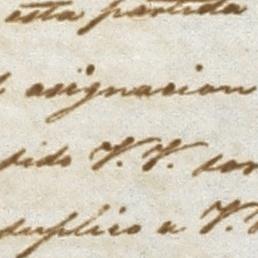 esta partida
asignacion
sido V. V. con
suplico a V. V.